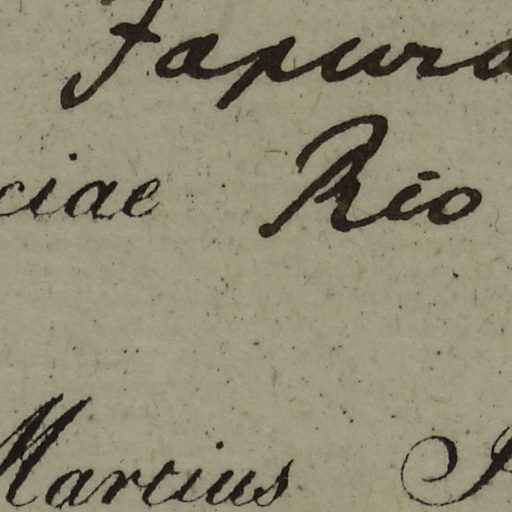 Japura
ciae Rio
Martius